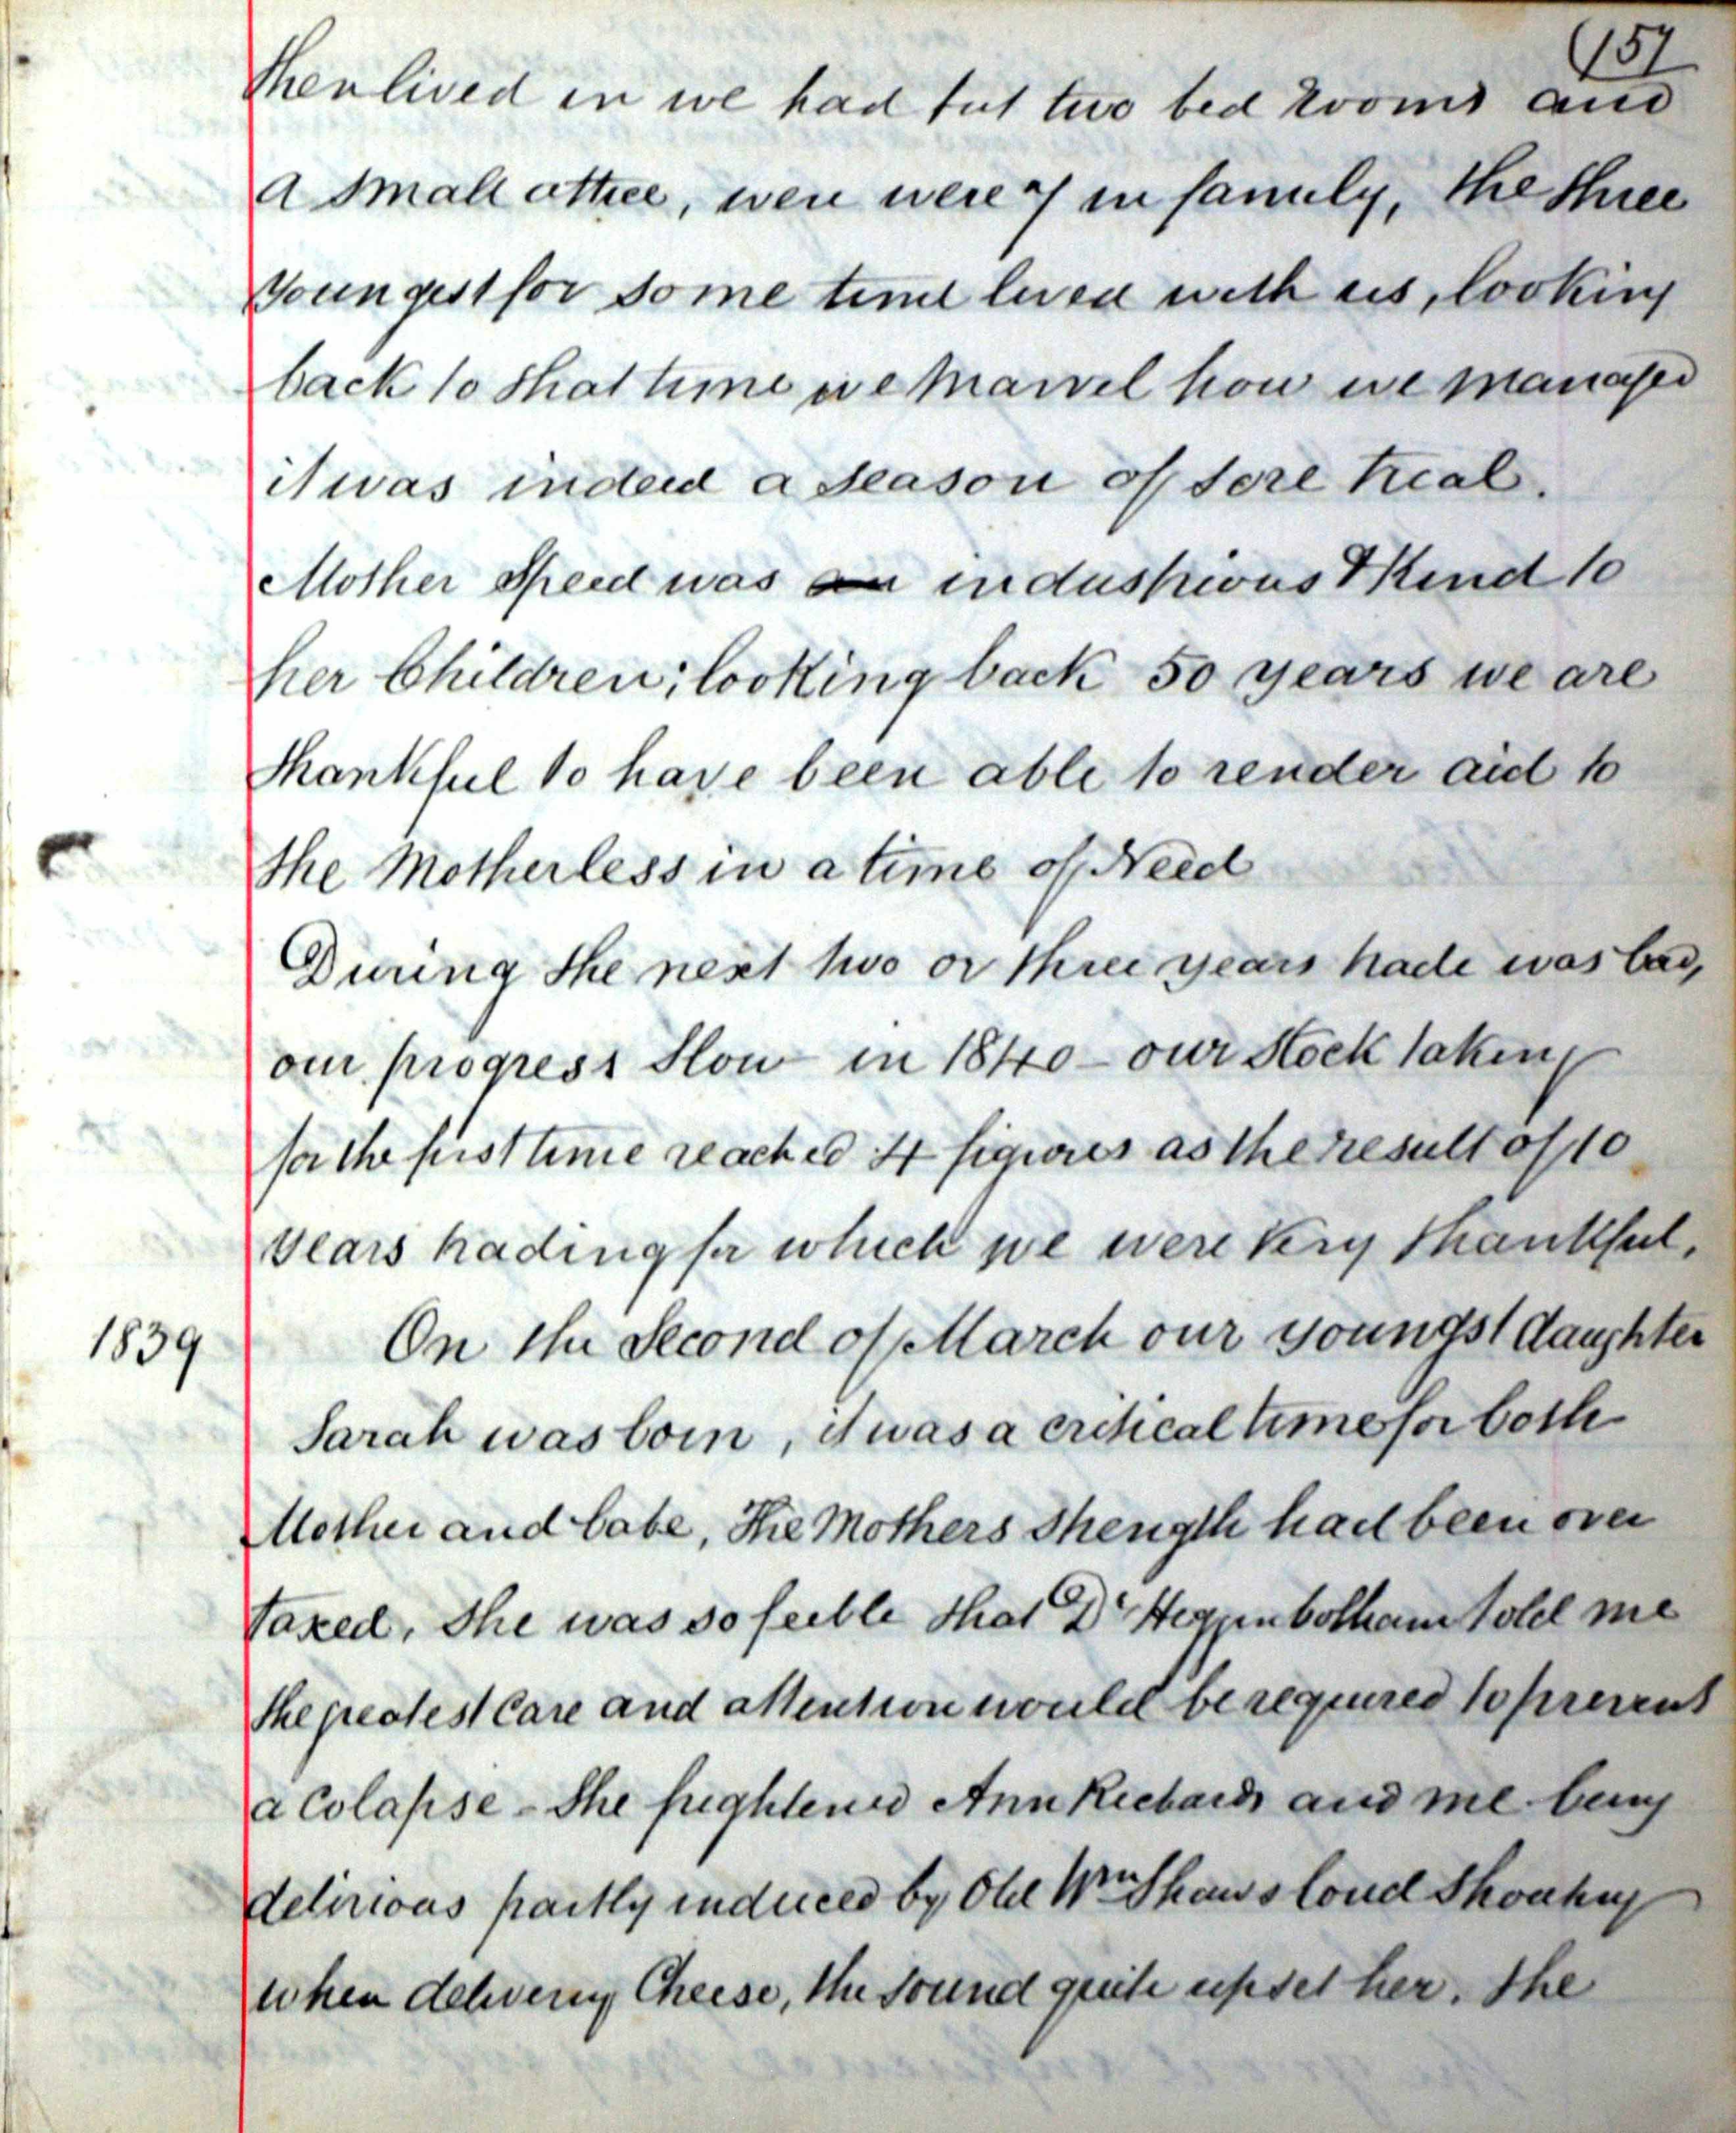 (157
then lived in we had but two bed rooms and
a small attice, were were 7 in family, the three
youngest for some time lived with us, looking
back to that time we marvel how we managed
it was indeed a season of sore trial.
Mother Speed was an industrious & Kind to
her Children; looking back 50 years we are
thankful to have been able to render aid to
the Motherless in a time of Need
During the next two or three years trade was bad,
our progress slow in 1840 - our stock taking
for the first time reached 4 figures as the result of 10
years trading for which we were very thankful.
1839
On the Second of March our youngst daughter
Sarah was born, it was a critical time for both
Mother and babe, The Mothers strength had been over
taxed, she was so feeble that Dr Hegginbotham told me
the greatest care and attention would be required to prevent
a Colapse - She frightened Ann Richards and me being
delirious partly induced by Old Wm Shaws loud shouting
when delivering Cheese, the sound quite upset her. the